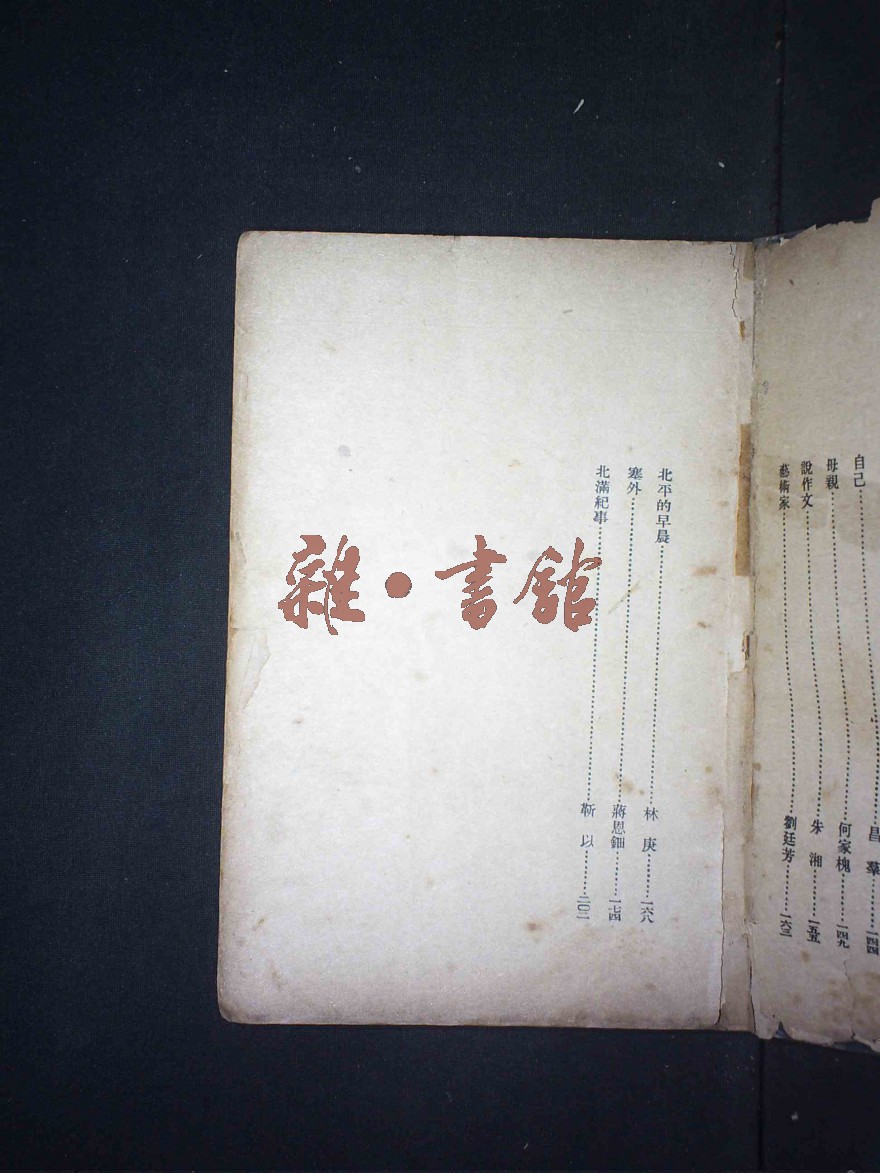 自己……昌羣……一四四
母親……何家槐……一四九
說作文……朱湘……一五五
藝術家……劉廷芳……一六三
北平的早晨……林庚……一六八
塞外……蔣恩鈿……一七四
北滿紀事……靳以……二〇二
雜·書館